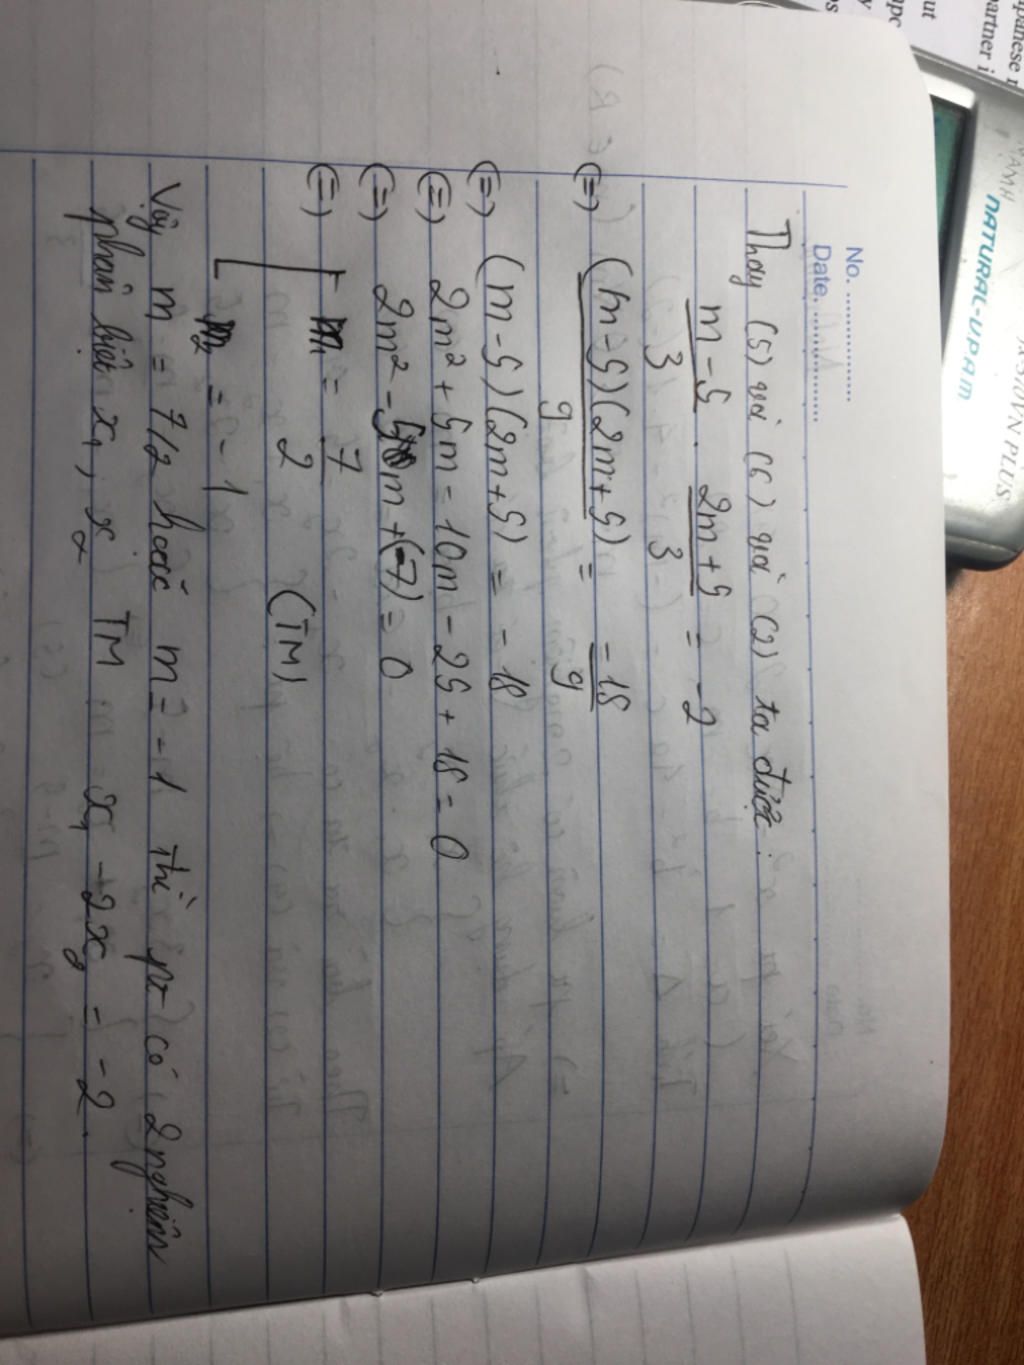 No. ................
Date. ................
Thay (5) và (6) vào (2) ta được:
m - 5 / 3 . 2m + 5 / 3 = -2
(=) (m - 5)(2m + 5) / 9 = -18 / 9
(=) (m - 5)(2m + 5) = -18
(=) 2m² + 5m = 10m - 25 + 18 = 0
(=) 2m² - 5m + (-7) = 0
(=) [ m₁ = 7 / 2 (TM)
m₂ = -1
Vậy m = 7/2 hoặc m = -1 thì pt có 2 nghiệm
phân biệt x₁, x₂ TM x₁ - 2x₂ = -2.
NATURAL-V.P.A.M
VN PLUS
panese
artner i
ut